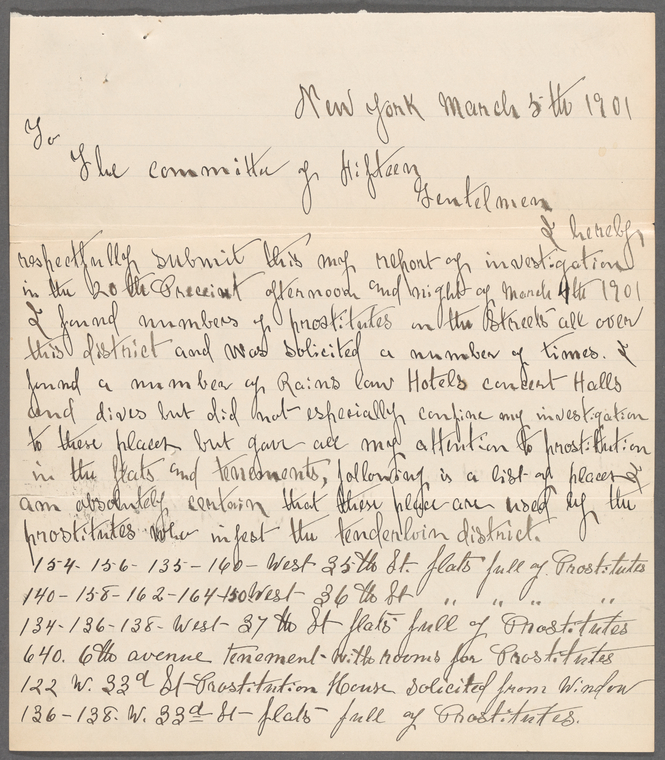 New York March 5th 1901
To
The committe of Fifteen
Gentelmen
I hereby,
respectfully submit this my report of investigation
in the 20th Precinct afternoon and night of March 4th 1901
I found numbers of prostitutes on the streets all over
this district and was solicited a number of times. I
found a number of Rains law Hotels concert Halls
and dives but did not especially confine my investigation
to these places but gave all my attention to prostitution
in the flats and tenements, following is a list of places I
am absolutely certain that these place are used by the
prostitutes who infest the tenderloin district.
154-156-135-160- West 35th St. flats full of Prostitutes
140-158-162-164-150 West 36th St " " " "
134-136-138- West 37th St flats full of Prostitutes
640. 6th avenue tenement with rooms for Prostitutes
122 W. 33d St-Prostitution House solicited from Window
136-138. W. 33d St- flats full of Prostitutes.